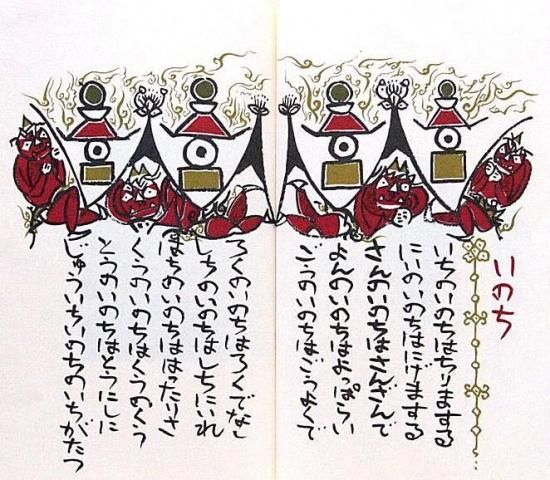 いのち
いちのいのちはちりまする
にいのいのちはにげまする
さんのいのちはさんざんで
よんのいのちはよっぱらい
ごうのいのちはごうよくで
ろくのいのちはろくでなし
しちのいのちはしちにいれ
はちのいのちははったりさ
くうのいのちはくうのくう
とうのいのちはとうにしに
じゅういちいのちのいちがたつ